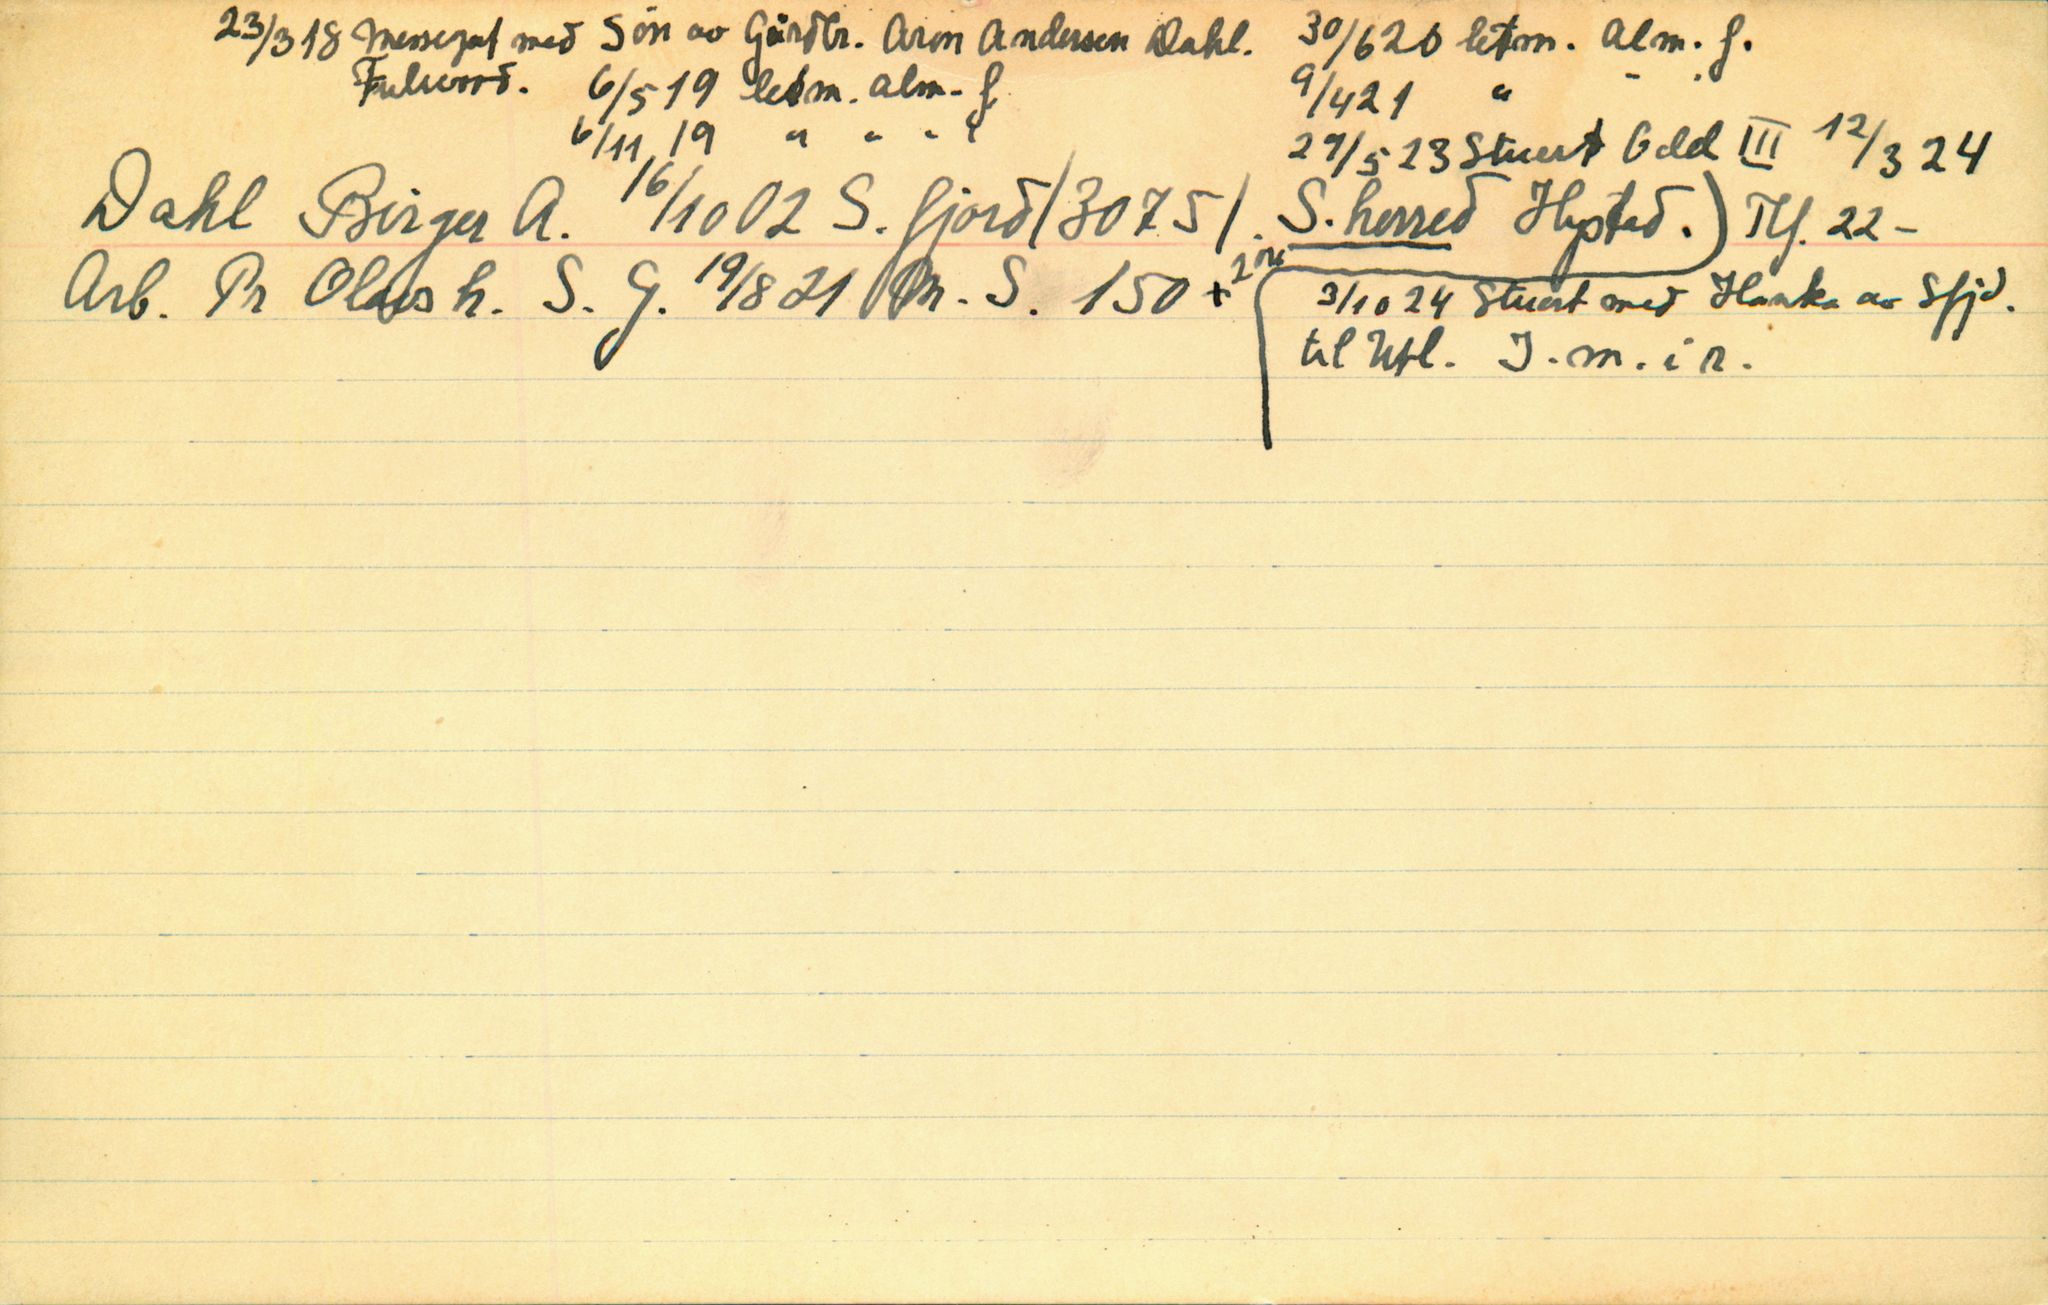 23/3 18 Messegut med Søn av Gårdbr. Aron Andersen Dahl.
Fulwood. 6/5 19 letm. alm. f.
6/11 19 " " " "
30/6 20 letm. alm. f.
9/4 21 " " "
29/5 23 Stuert Odd III 12/3 24
Dahl Birger A. 16/10 02 S. fjord /3075/. S. herred Hystad.) Tlf. 22-
Arb. Pr Olavs h. S. G. 19/8 21 M. S. 150 +
3/10 24 Stuert med Hauka av Sfjd.
til Utl. I. m. i R.